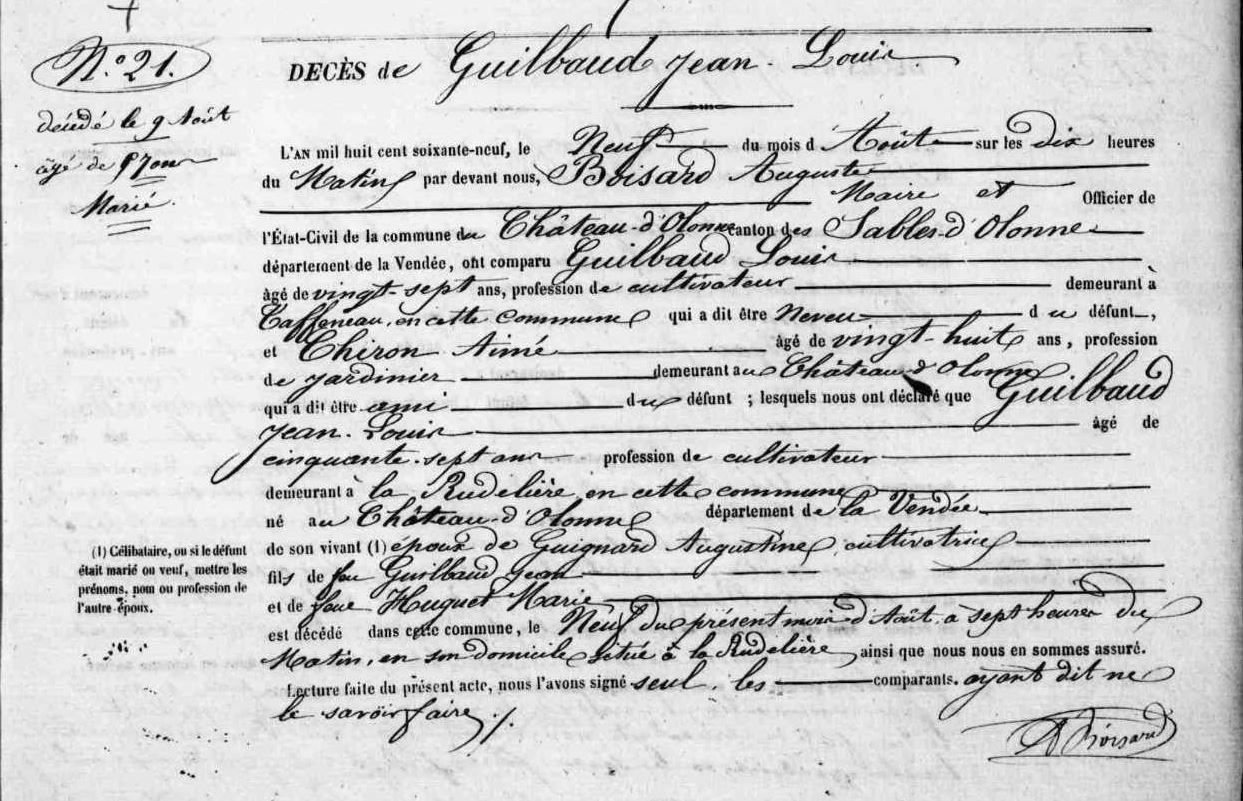 N.° 21.
DECÈS de Guilbaud Jean-Louis
décédé le 9 Août
âgé de 57 ans
Marié.
L'AN mil huit cent soixante-neuf, le Neuf du mois d'Août sur les dix heures
du Matin par devant nous, Boisard Auguste
Maire et Officier de
l'État-Civil de la commune du Château-d'Olonne canton des Sables-d'Olonne
département de la Vendée, ont comparu Guilbaud Louis
âgé de vingt-sept ans, profession de cultivateur demeurant à
Taffeneau, en cette commune qui a dit être Neveu du défunt,
et Chiron Aimé âgé de vingt-huit ans, profession
de jardinier demeurant au Château-d'Olonne
qui a dit être ami du défunt ; lesquels nous ont déclaré que Guilbaud
Jean-Louis âgé de
cinquante-sept ans profession de cultivateur
demeurant à la Rudelière, en cette commune
né au Château-d'Olonne département de la Vendée
de son vivant (1) époux de Guignard Augustine, cultivatrice
fils de feu Guilbaud Jean
et de feue Huguet Marie
est décédé dans cette commune, le Neuf du présent mois d'Août, à sept heures du
Matin, en son domicile situé à la Rudelière, ainsi que nous nous en sommes assuré.
Lecture faite du présent acte, nous l'avons signé seul, les comparants, ayant dit ne
le savoir faire ./.
A Boisard
(1) Célibataire, ou si le défunt
était marié ou veuf, mettre les
prénoms, nom ou profession de
l'autre époux.